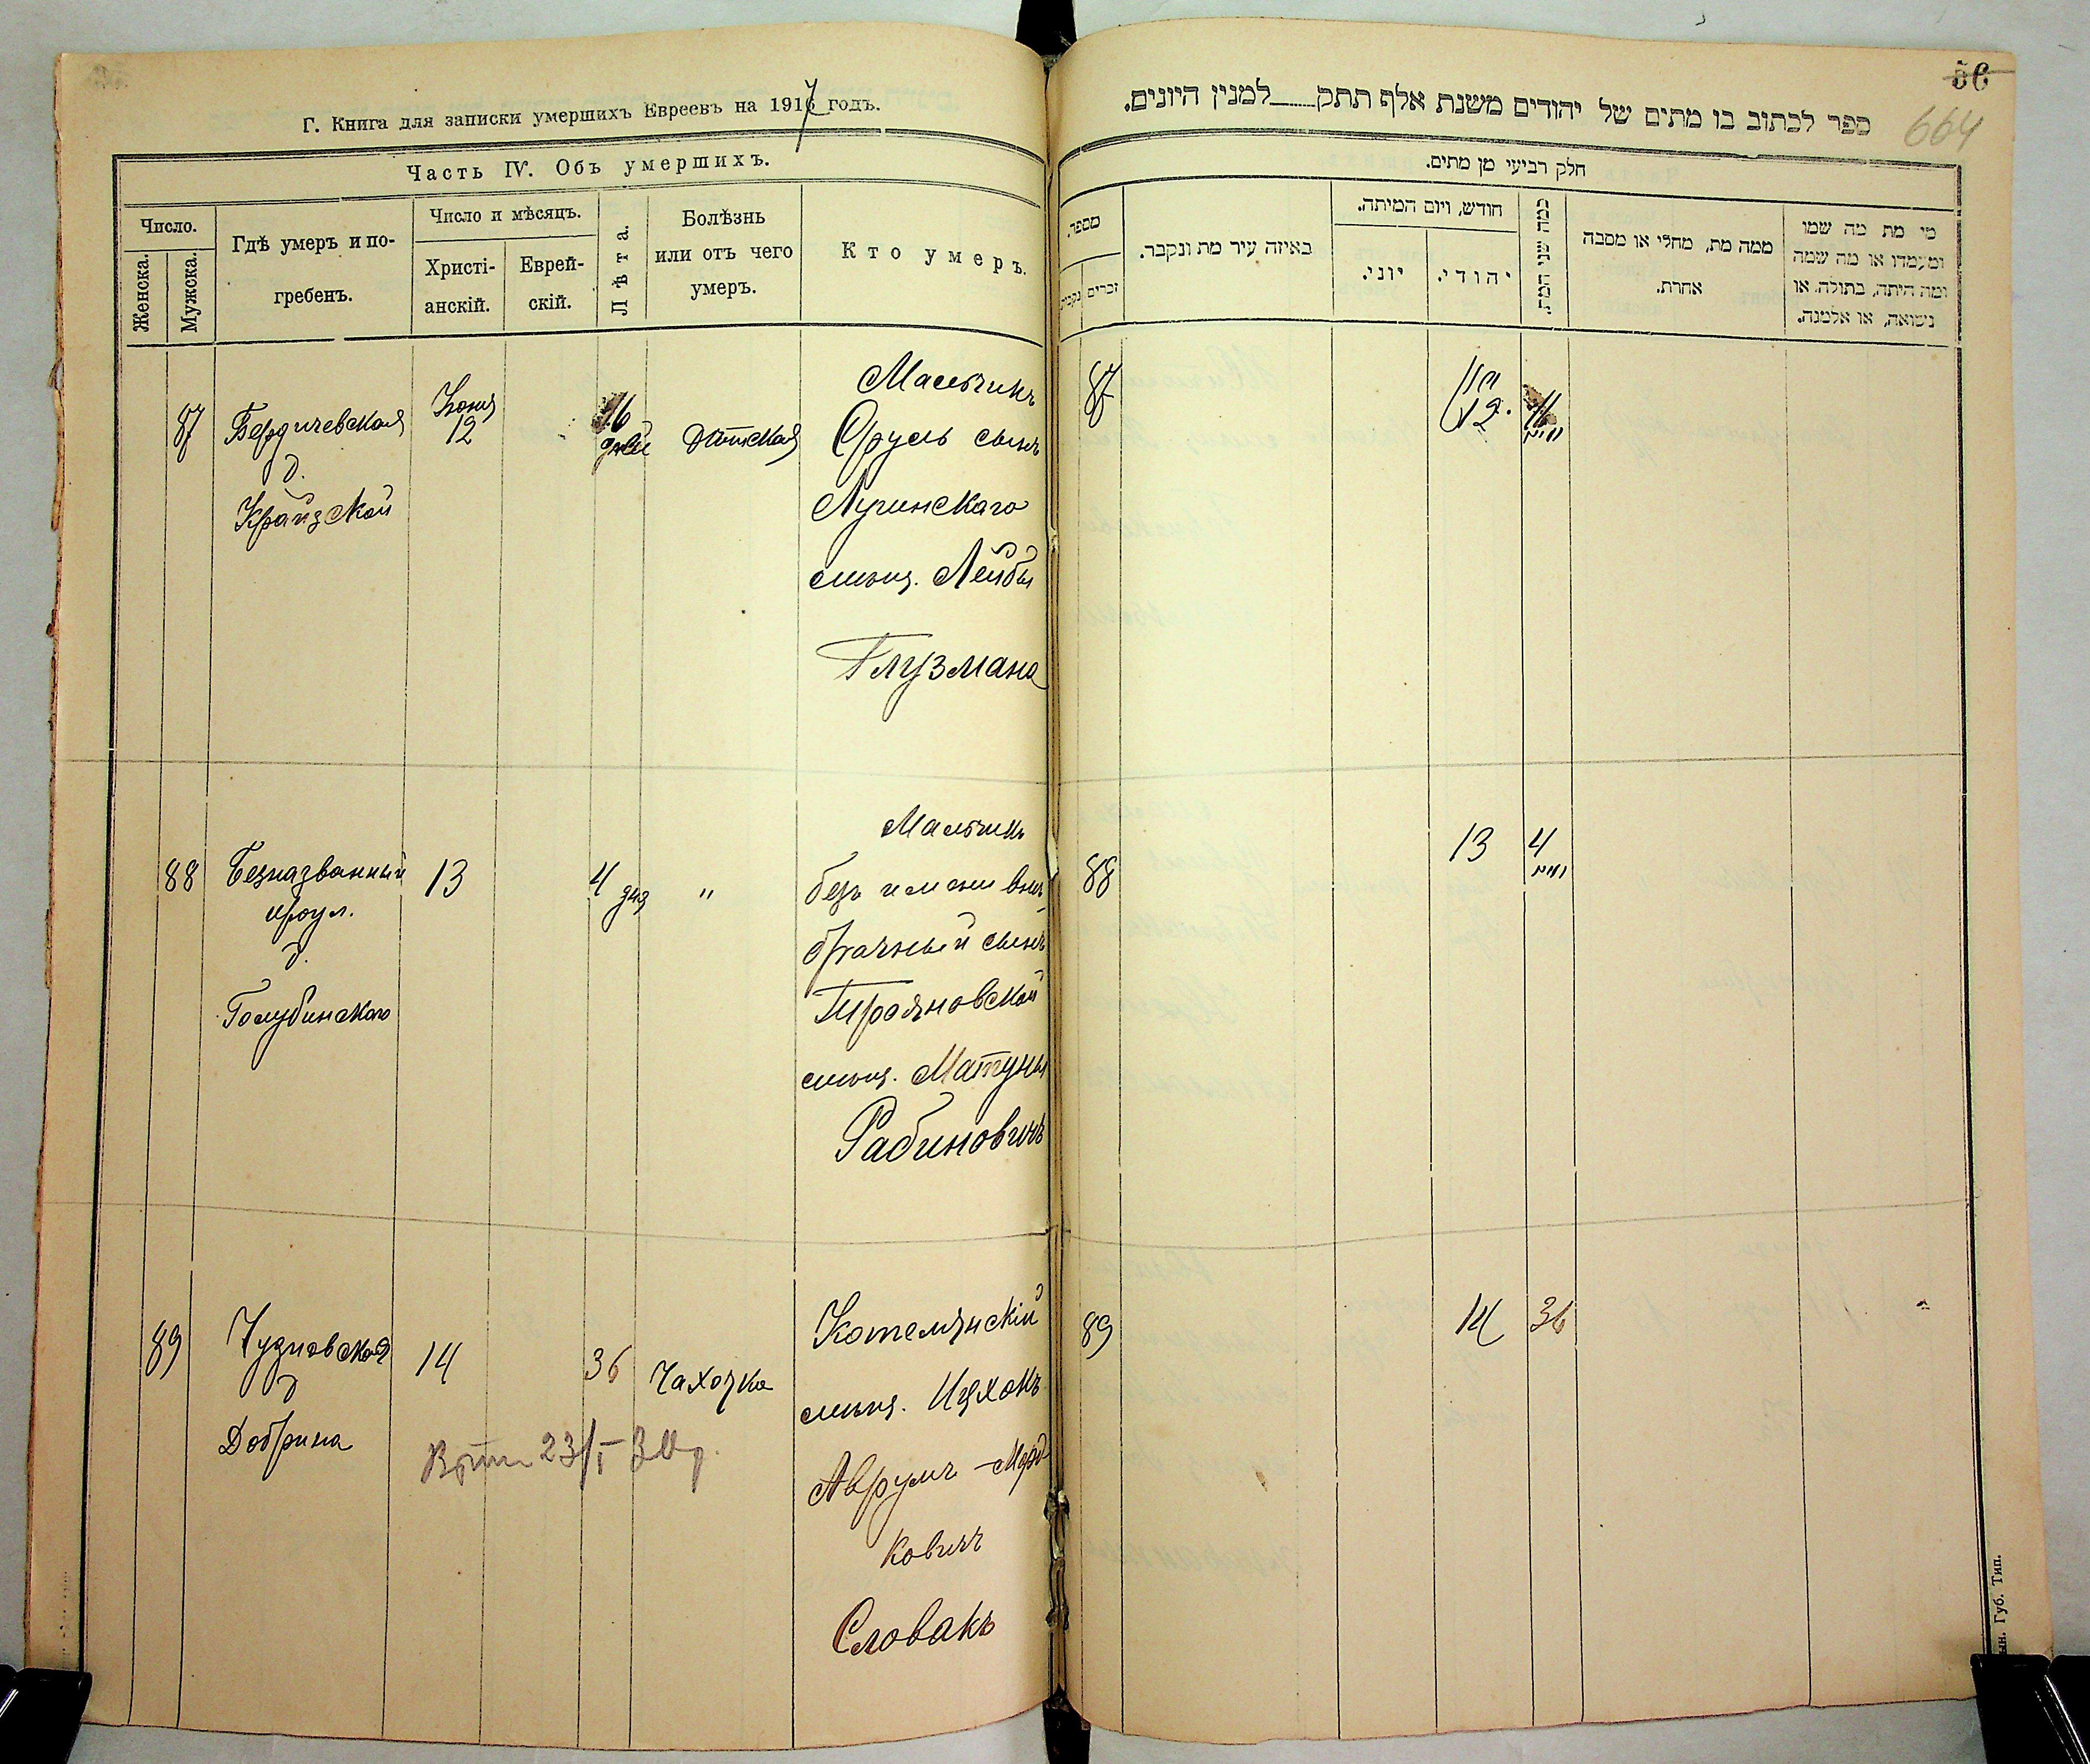 Г. Книга для записки умершихъ Евреевъ на 1917 годъ.
Часть IV. Объ умершихъ.
Число.
Женска.
Мужска.
Гдѣ умеръ и по-
гребенъ.
Число и мѣсяцъ.
Христі-
анскій.
Еврей-
скій.
Лѣта.
Болѣзнь
или отъ чего
умеръ.
Кто умеръ.
87
Бердичевская
д.
Крайзской
Іюня
12
16
дней
Дѣтская
Мальчикъ
Сруль сынъ
Лугинскаго
мѣщ. Лейбы
Глузмана
88
Безназванный
проул.
д.
Голубинскаго
13
4 дня
"
Мальчикъ
безъ имени внѣ-
брачный сынъ
Трояновской
мѣщ.
Рабиновичъ
89
Чудновская
д
Добрина
14
36
Чахотка
Котелянскій
мѣщ. Ицхокъ
Аврумъ-Морд
ковичъ
Словакъ
23/I
56
664
ספר לכתוב בו מתים של יהודים משנת אלף תתק למנין היונים.
חלק רביעי מן מתים.
מספר.
זכרים
נקבות
באיזה עיר מת ונקבר.
חודש, ויום המיתה.
יוני.
יהודי.
כמה שני המת.
ממה מת, מחלי או מסבה
אחרת.
מי מת מה שמו
ומעמדו או מה שמה
ומה היתה, בתולה, או
נשואה, או אלמנה.
87
12.
88
13
4
89
14
36
Губ. Тип.